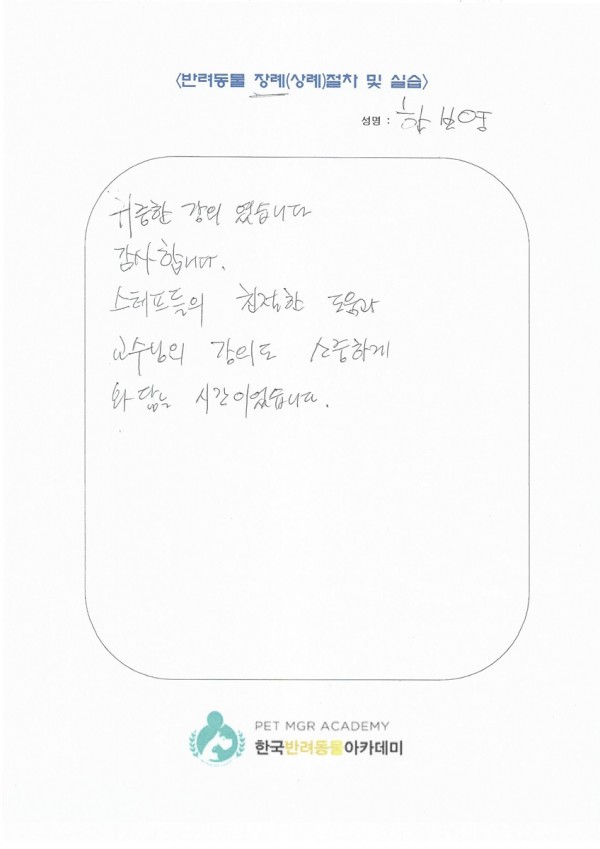 <반려동물 장례(상례)절차 및 실습>
성명 : 한보영
귀중한 강의 였습니다
감사합니다.
스테프들의 친절한 도움과
교수님의 강의도 소중하게
와 닿는 시간이었습니다.
PET MGR ACADEMY
한국반려동물아카데미